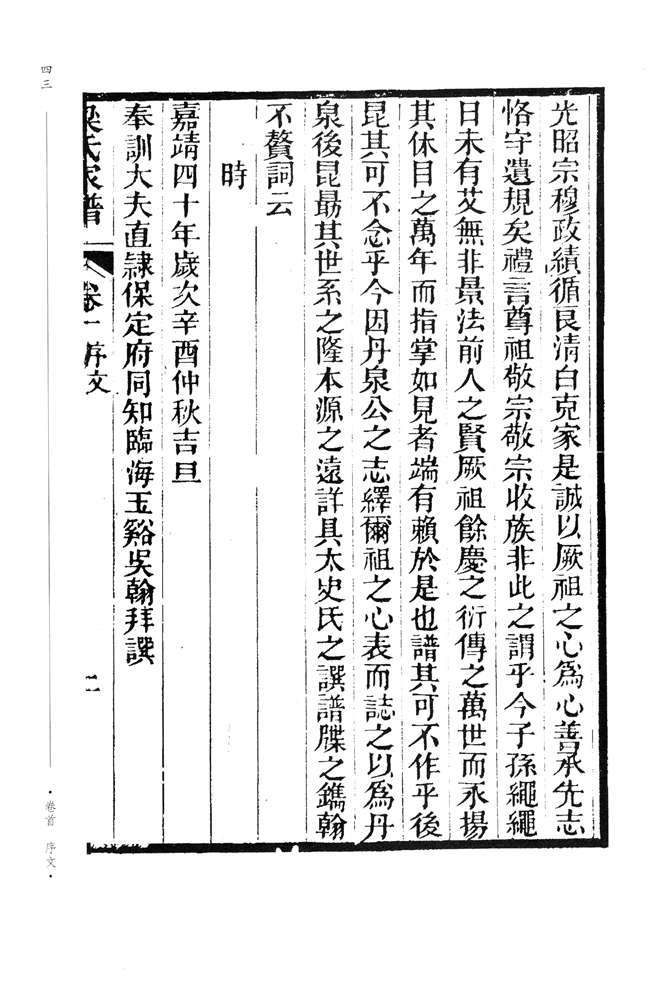 光昭宗穆政績循良清白克家是誠以厥祖之心爲心善承先志
恪守遺規矣禮言尊祖敬宗敬宗收族非此之謂乎今子孫繩繩
日未有艾無非景法前人之賢厥祖餘慶之衍傳之萬世而永揚
其休目之萬年而指掌如見者端有賴於是也譜其可不作乎後
昆其可不念乎今因丹泉公之志繹爾祖之心表而誌之以爲丹
泉後昆最其世系之隆本源之遠詳具太史氏之譔譜牒之鐫翰
不贅詞云
時
嘉靖四十年歲次辛酉仲秋吉旦
奉訓大夫直隸保定府同知臨海玉谿吳翰拜譔
梁氏家譜 卷一 序文 二
四三
·卷首 序文·